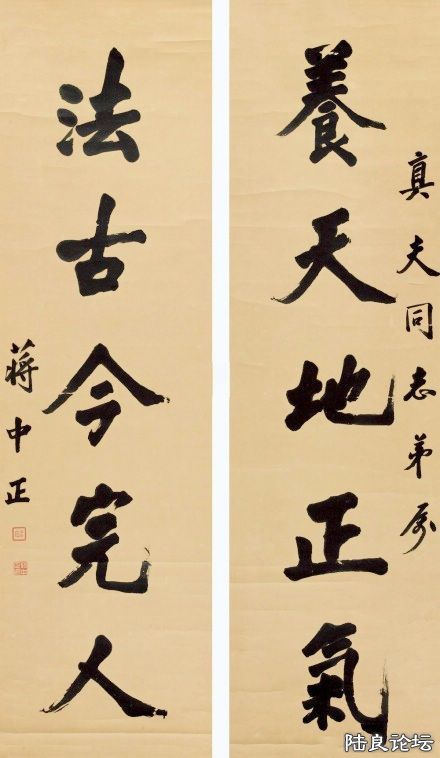 真夫同志弟属
養天地正氣
法古今完人
蔣中正
陆良论坛